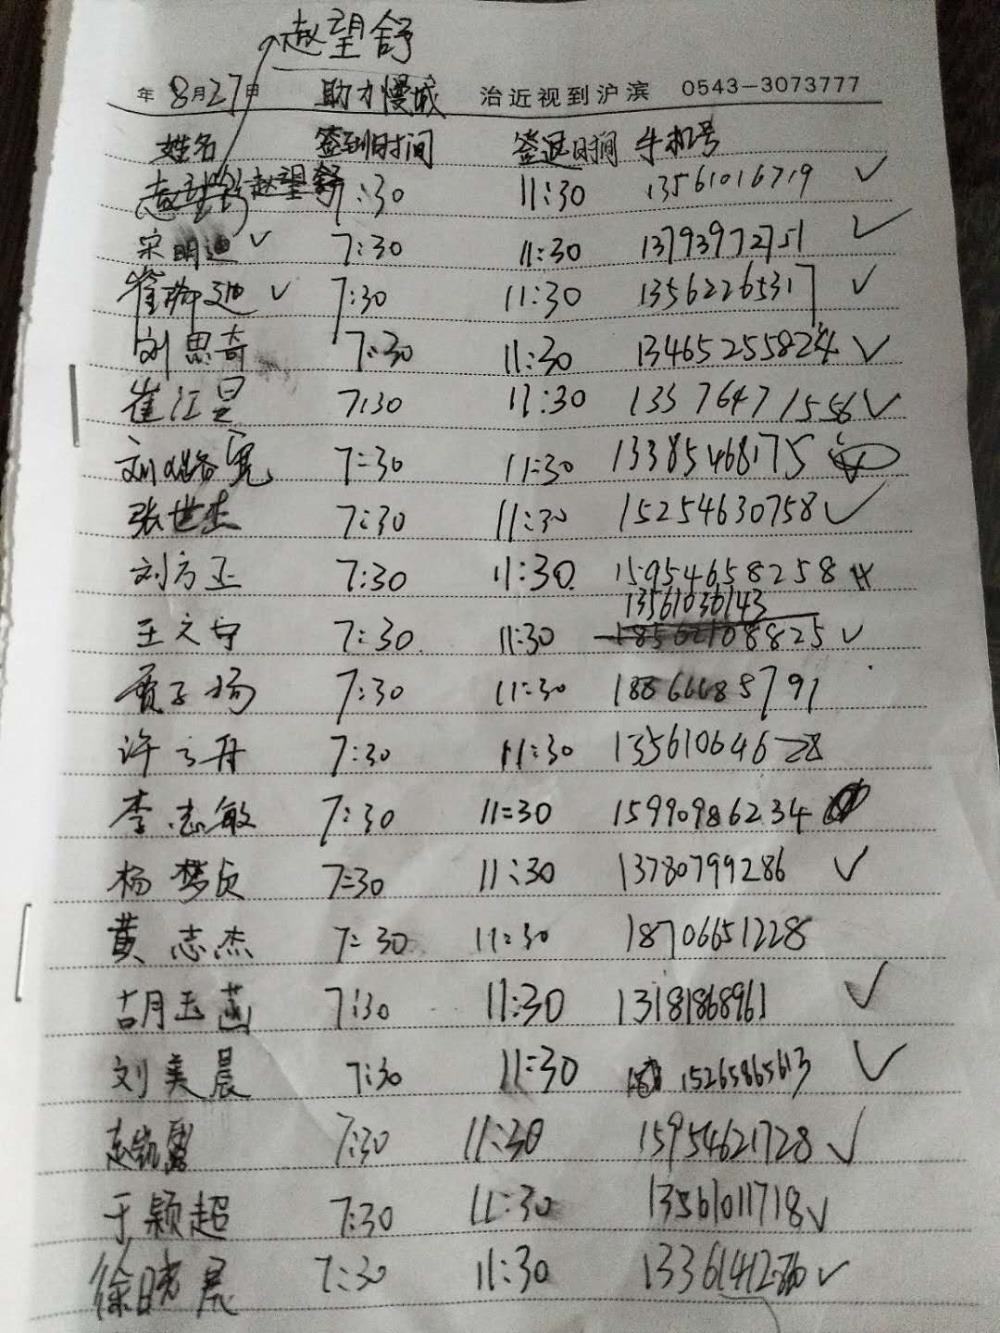 赵望舒
年 8月27日 助力慢城 治近视到沪滨 0543-3073777
姓名 签到时间 签退时间 手机号
赵望舒 7:30 11:30 13561016719 ✓
宋明迪 ✓ 7:30 11:30 13793972751 ✓
崔 ✓ 7:30 11:30 13562265317 ✓
刘思奇 7:30 11:30 13465255824 ✓
崔江昊 7:30 11:30 13376471556 ✓
刘璐宽 7:30 11:30 13385468175
张世杰 7:30 11:30 15254630758 ✓
刘方正 7:30 11:30 15954658258
13561036143
王文宇 7:30 11:30 18562108825 ✓
贾子扬 7:30 11:30
许云舟 7:30 11:30 13561064628
李志敏 7:30 11:30 15990986234
杨梦贞 7:30 11:30 13780799286 ✓
黄志杰 7:30 11:30 18706651228
胡玉菡 7:30 11:30 13181868961 ✓
刘美晨 7:30 11:30 15265865613 ✓
赵凯露 7:30 11:30 15954621728 ✓
于颖超 7:30 11:30 13561011718 ✓
徐晓晨 7:30 11:30 ✓